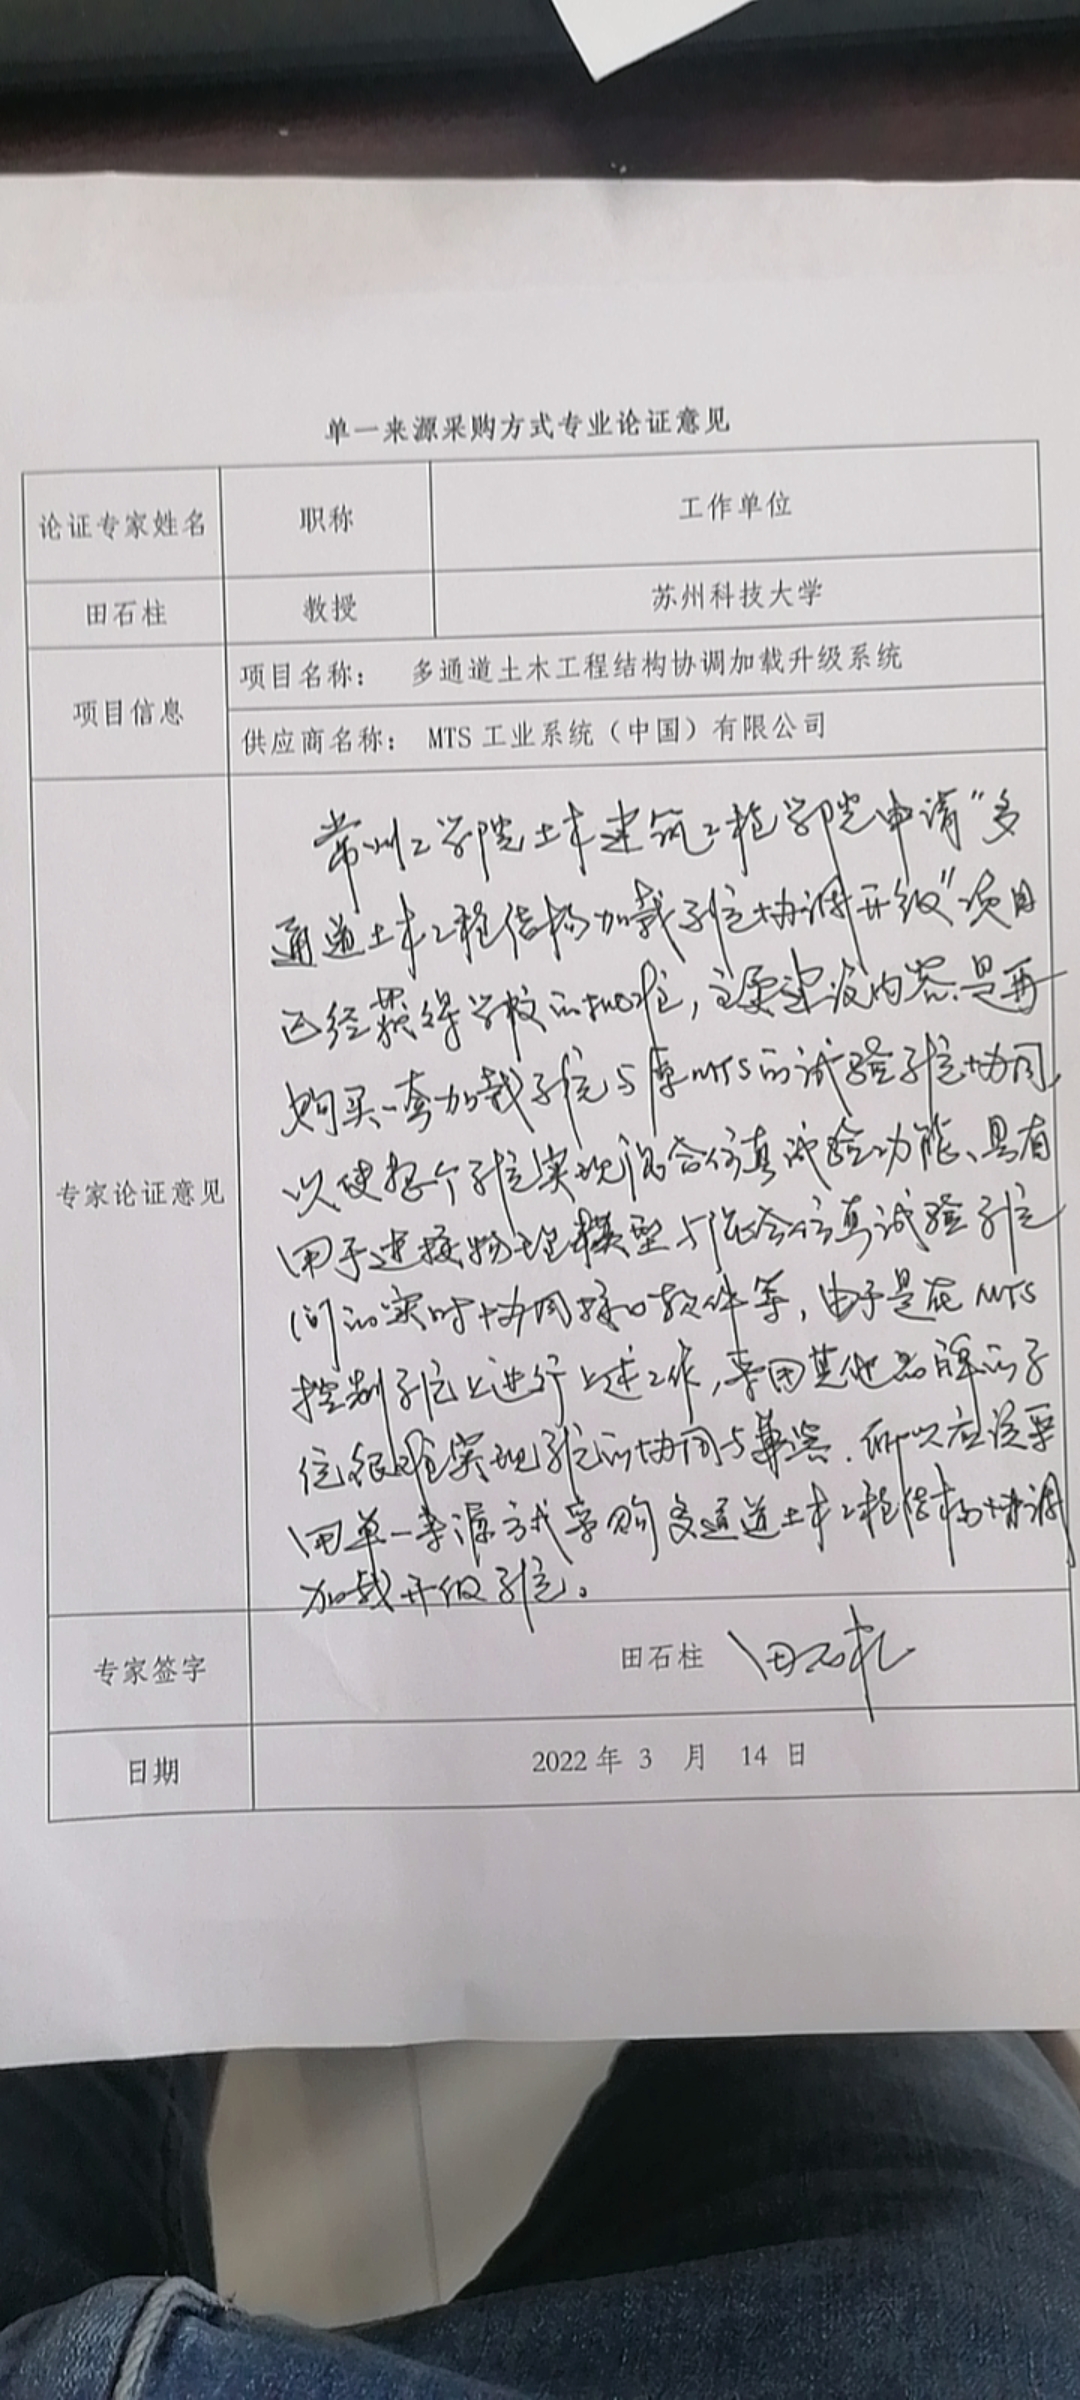 单一来源采购方式专业论证意见
论证专家姓名 职称 工作单位
田石柱 教授 苏州科技大学
项目信息 项目名称： 多通道土木工程结构协调加载升级系统
供应商名称： MTS 工业系统（中国）有限公司
专家论证意见
常州工学院土木建筑工程学院申请“多
通道土木工程结构加载系统协调升级”项目
已经获得学校的批准，主要建设内容是再
购买一套加载系统与原MTS的试验系统协同，
以使整个系统实现混合仿真试验功能、具有
用于连接物理模型与混合仿真试验系统
间的实时协同接口软件等，由于是在MTS
控制系统上进行上述工作，采用其他品牌的系
统很难实现系统的协同与兼容．所以应该采
用单一来源方式采购多通道土木工程结构协调
加载升级系统。
专家签字 田石柱 田石柱
日期 2022 年 3 月 14 日